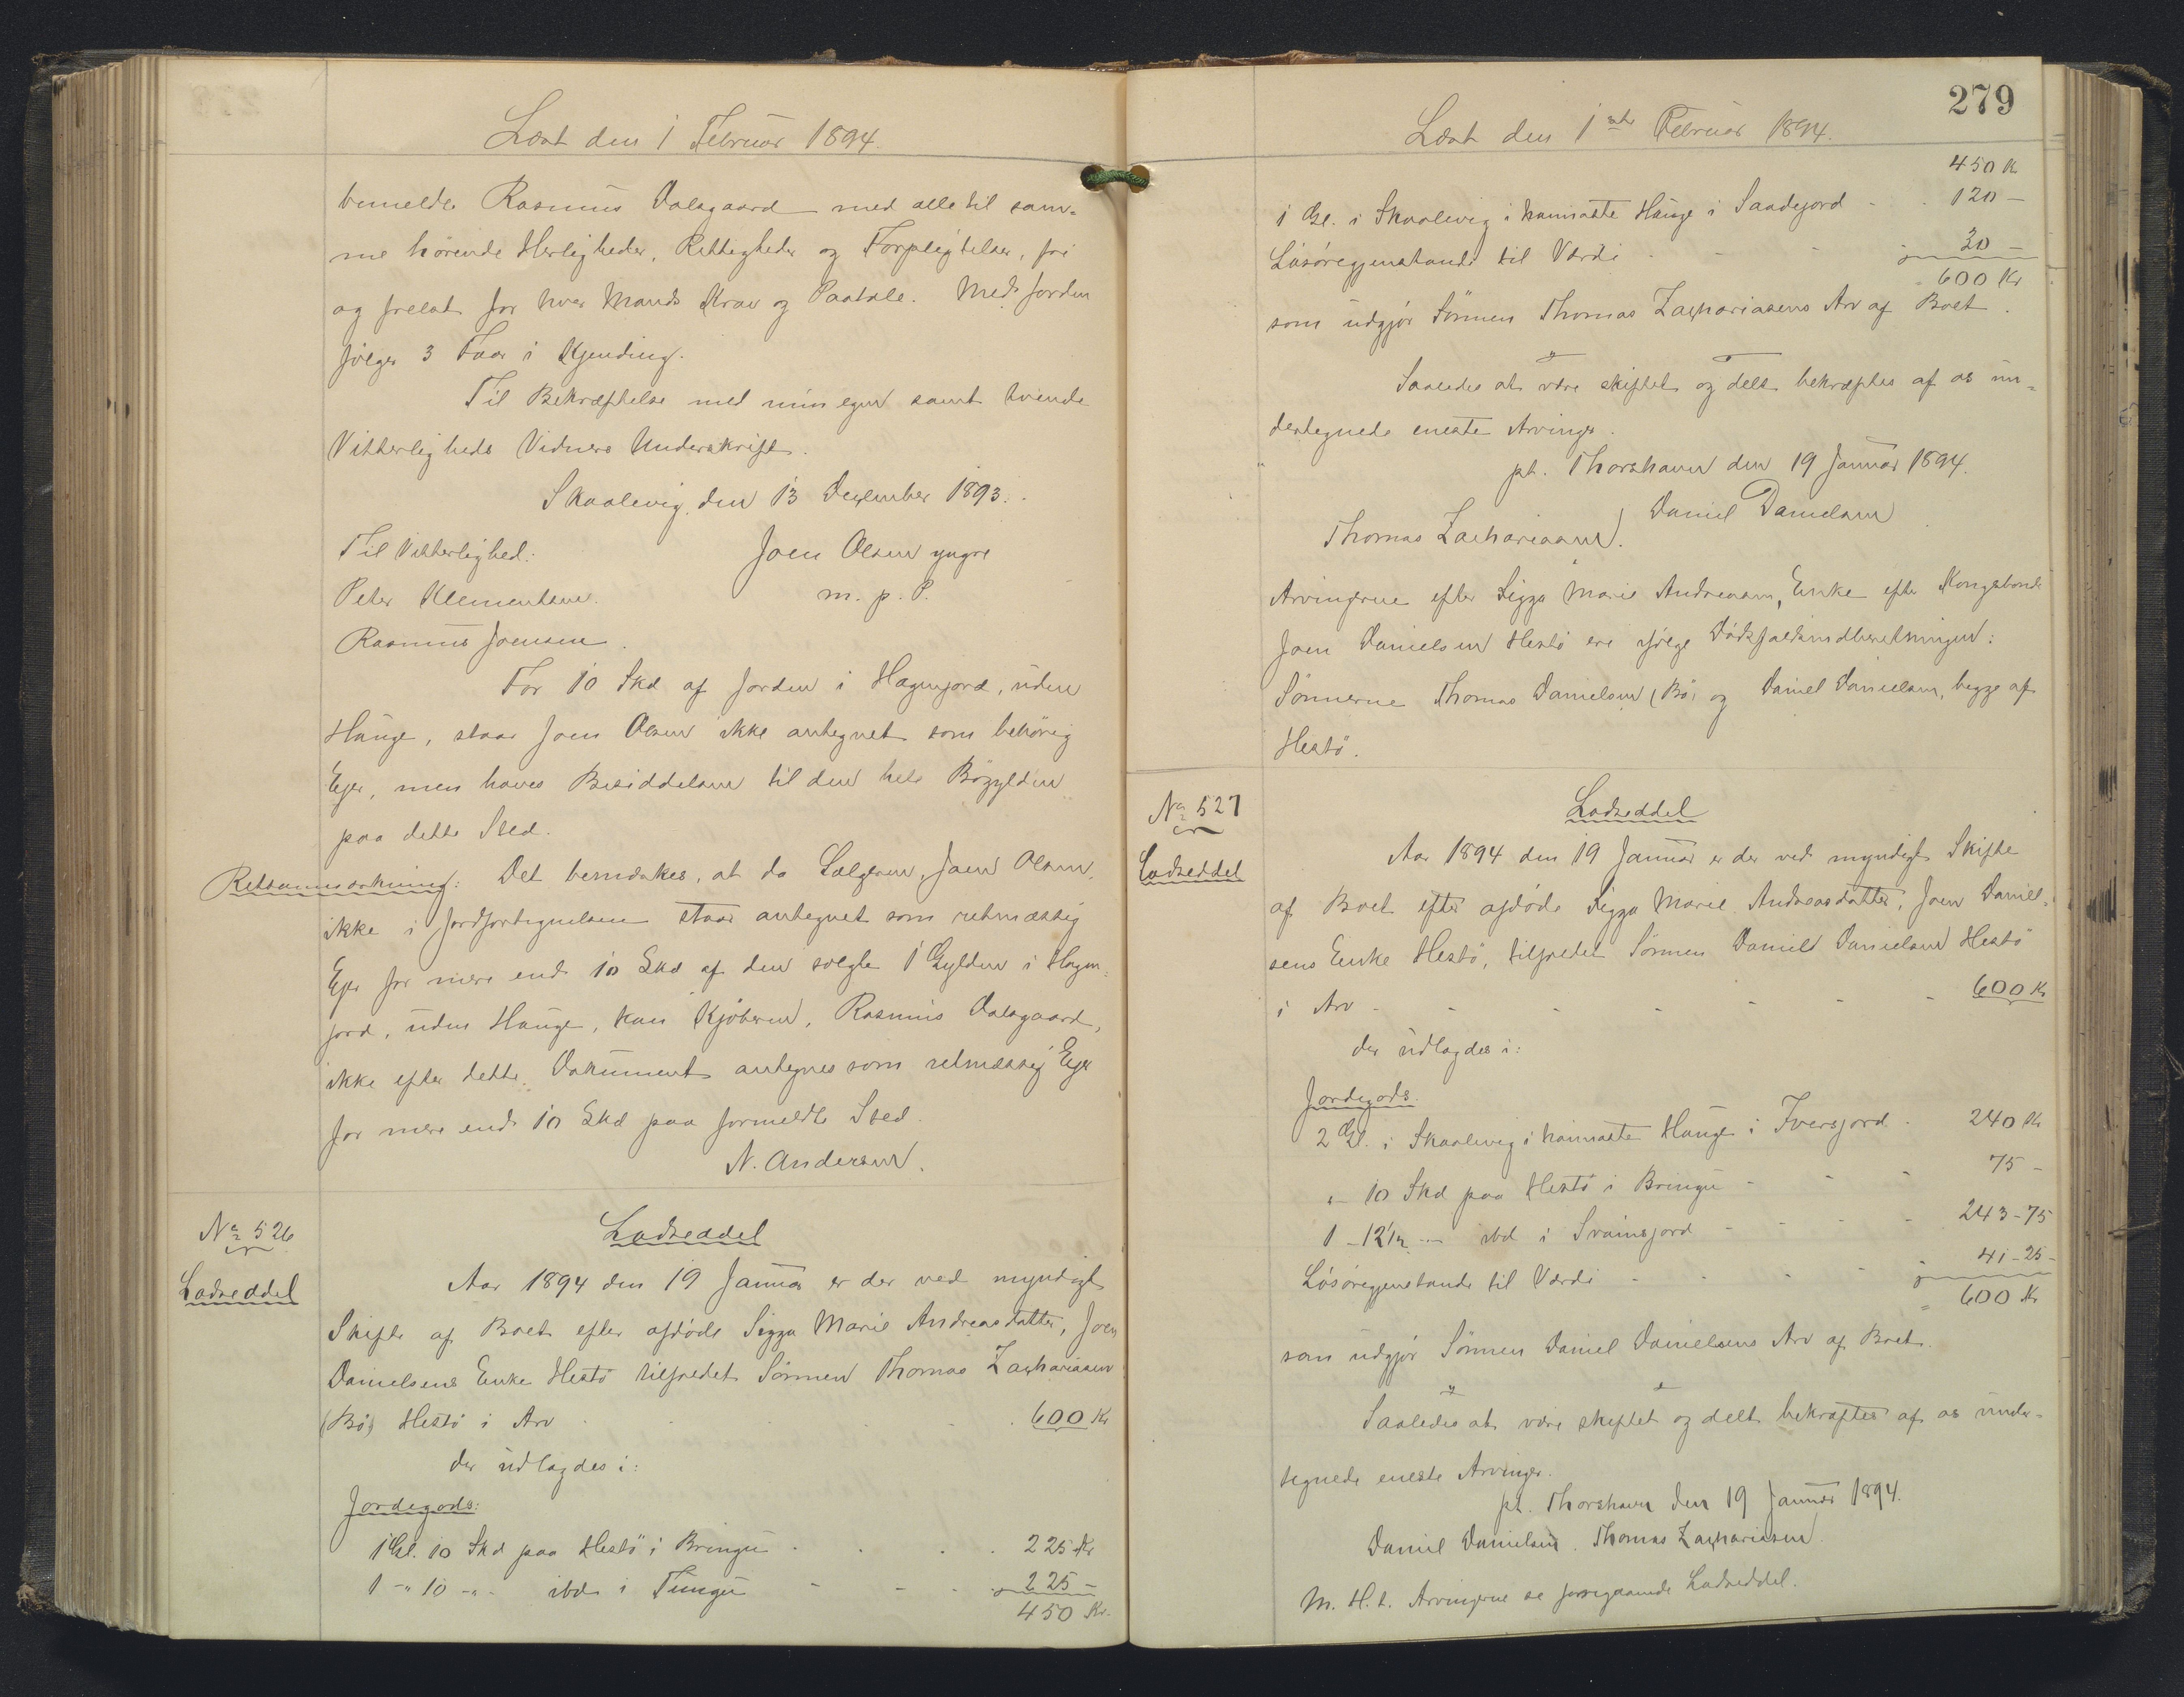 Læst den 1 Februar 1894.
bemeldte Rasmus Dalsgaard med alle til sam-
me hörende Herligheder, Rettigheder og Forpligtelser, fri
og frelst for hver Mands Krav og Paatale. Med Jorden
følger 3 Faar i Kjending.
Til Bekræftelse med min egen samt tvende
Vitterligheds Vidners Underskrift.
Skaalevig den 13 December 1893.
Til Vitterlighed: Joen Olsen yngre
Peter Klementsen. m. p. P.
Rasmus Joensen.
For 10 Skd af Jorden i Hagenjord, uden
Hauge, staar Joen Olsen ikke antegnet som behörig
Ejer, men haves Besiddelsen til den hele Bögylden
paa dette Sted.
Retsanmærkning: Det bemærkes, at da Sælgeren, Joen Olsen,
ikke i Jordfortegnelsen staar antegnet som retmæssig
Ejer for mere end 10 Skd af den solgte 1 Gylden i Hagen-
jord, uden Hauge, kan Kjöberen, Rasmus Dalsgaard,
ikke efter dette Dokument antegnes som retmæssig Ejer
for mere end 10 Skd paa formeldte Sted.
N. Andersen.
No 526
Lodseddel
Lodseddel
Aar 1894 den 19 Januar er der ved myndigt
Skifte af Boet efter afdöde Sigga Marie Andreasdatter, Joen
Danielsens Enke Hestö tilfredet Sönnen Thomas Zachariasen
(Bö) Hestö i Arv 600 Kr
der udlagdes i:
Jordegods:
1 Gl. 10 Skd paa Hestö i Bringu 225 Kr
1 -"- 10 -"- ibd i Tungu 225 -
450 Kr.
279
Læst den 1ste Februar 1894.
450 Kr
1 Gl. i Skaalevig i hannaste Hauge i Saadejord 120 -
Lösöregjenstande til Værdi 30 -
600 Kr
som udgjör Sönnen Thomas Zachariasens Arv af Boet.
Saaledes at være skiftet og delt bekræftes af os un-
dertegnede eneste Arvinger.
pt. Thorshavn den 19 Januar 1894.
Daniel Danielsen
Thomas Zachariasen.
Arvingerne efter Sigga Marie Andreasen, Enke efter Kongsbonde
Joen Danielsen Hestö ere ifölge Dödsfaldsindberetningen:
Sönnerne Thomas Danielsen (Bö) og Daniel Danielsen, begge af
Hestö.
No 527
Lodseddel
Lodseddel
Aar 1894 den 19 Januar er der ved myndigt Skifte
af Boet efter afdöde Sigga Marie Andreasdatter, Joen Daniel-
sens Enke Hestö, tilfredet Sönnen Daniel Danielsen Hestö
i Arv 600 Kr
der udlagdes i:
Jordegods.
2 Gl. i Skaalevig i hannaste Hauge i Iversjord 240 Kr
"- 10 Skd paa Hestö i Bringu 75 -
1 - 12½ -"- ibd i Svainsjord 243-75
Lösöregjenstande til Værdi 41-25-
600 Kr
som udgjör Sönnen Daniel Danielsens Arv af Boet.
Saaledes at være skiftet og delt bekræftes af os under-
tegnede eneste Arvinger.
pt. Thorshavn den 19 Januar 1894.
Daniel Danielsen. Thomas Zachariasen.
M. H. t. Arvingerne se foregaaende Lodseddel.